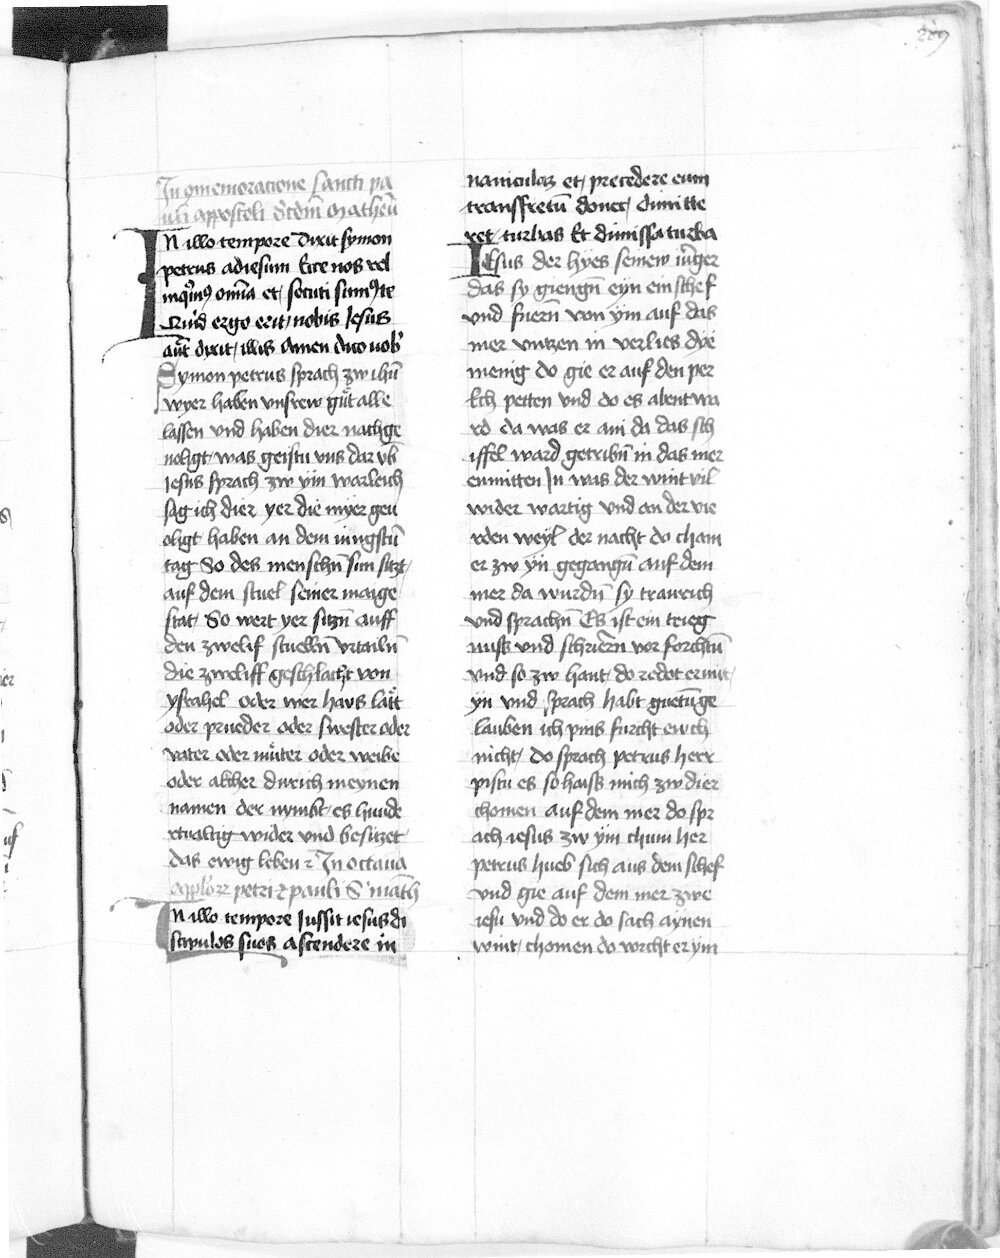 289
In ꝯmemoracione Sancti pa
uli appostoli Scdm̄ Matheū
In illo tempore Dixit symon
petrus adiesum Ecce nos rel
inqͥmꝰ om̄ia et secuti sumꝰ te
Quid ergo erit nobis Jesus
aut̄ dixit illis Amen dico vob̾
Symon petrus sprach zw ihū
wyer haben vnsrew guͤt alle
lassen vnd haben dier nachge
uolgt was geistu vns dar vb̄
iesus sprach zw yīn warleich
sag ich dier yer die myer geu
oligt haben an dem iungstn̄
tag So des menschn̄ sun sitzt
auf dem stuel seiner maige
stat So wert yer sitzn̄ auff
den zwelif stuelln̄ vrtailn̄
die zweliff geschlacht von
ysrahel oder wer havs latt
oder prueder oder swester oder
vater oder muͤter oder weibe
oder akher durich meynen
namen der nymbt es hunde
rtualtig wider vnd besitzet
das ewig leben ⁊ In octaua
appl̾oꝝ petri ⁊ pauli S math̄
In illo tempore Jussit iesus di
scipulos suos ascendere in
nauiculaꝫ et precedere eum
transfretū donec dimitte
ret turbas Et dimissa turba
Jesus der hyes seinew iūger
das sy giengn̄ eyn ein schef
vnd fuern̄ von ym auf das
mer vntzen in verlies die
menig do gie er auf den per
Ech peiten vnd do es abent wa
rd da was er ain da das sch
iffel ward getribn̄ in das mer
enmitten In was der wint vil
wider wartig vnd an der vie
rden weyl der nacht do cham
er zw yn̄ gegangn̄ auf dem
mer da wurdn̄ sy traurich
vnd sprachn̄ Es ist ein trieg
nusz vnd schriern̄ vor forchtn̄
vnd so zw hant do redot er mit
yn vnd sprach habt guetn̄ ge
lauben ich pins furcht ewch
nicht do sprach petrus herr
pistu es so haisz mich zw dier
chomen auf dem mer do spr
ach iesus zw ym chum her
petrus hueb sich aus dem schef
vnd gie auf dem mer zwe
iesu vnd do er do sach aynen
wint chomen do worcht er ym